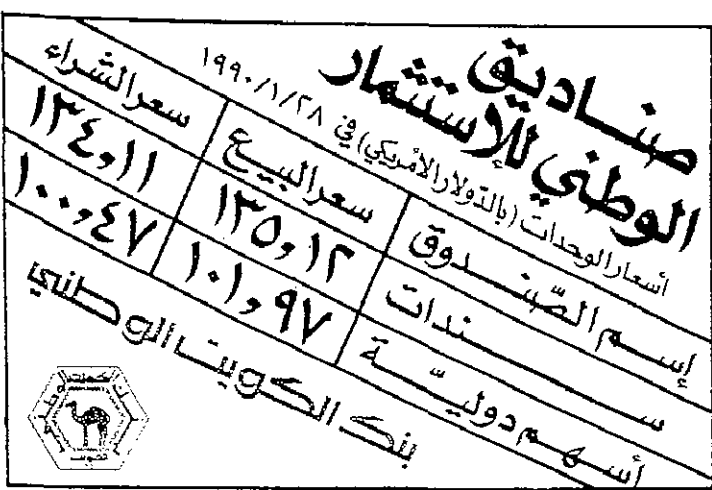 صناديق
الوطني للإستثمار
أسعار الوحدات (بالدّولار الأمريكي) في ١٩٩٠/١/٢٨
إسم الصّندوق سعر البيع سعر الشراء
سندات ١٣٥,١٢ ١٣٤,١١
أسهم دوليّة ١٠١,٩٧ ١٠٠,٤٧
بنك الكويت الوطني